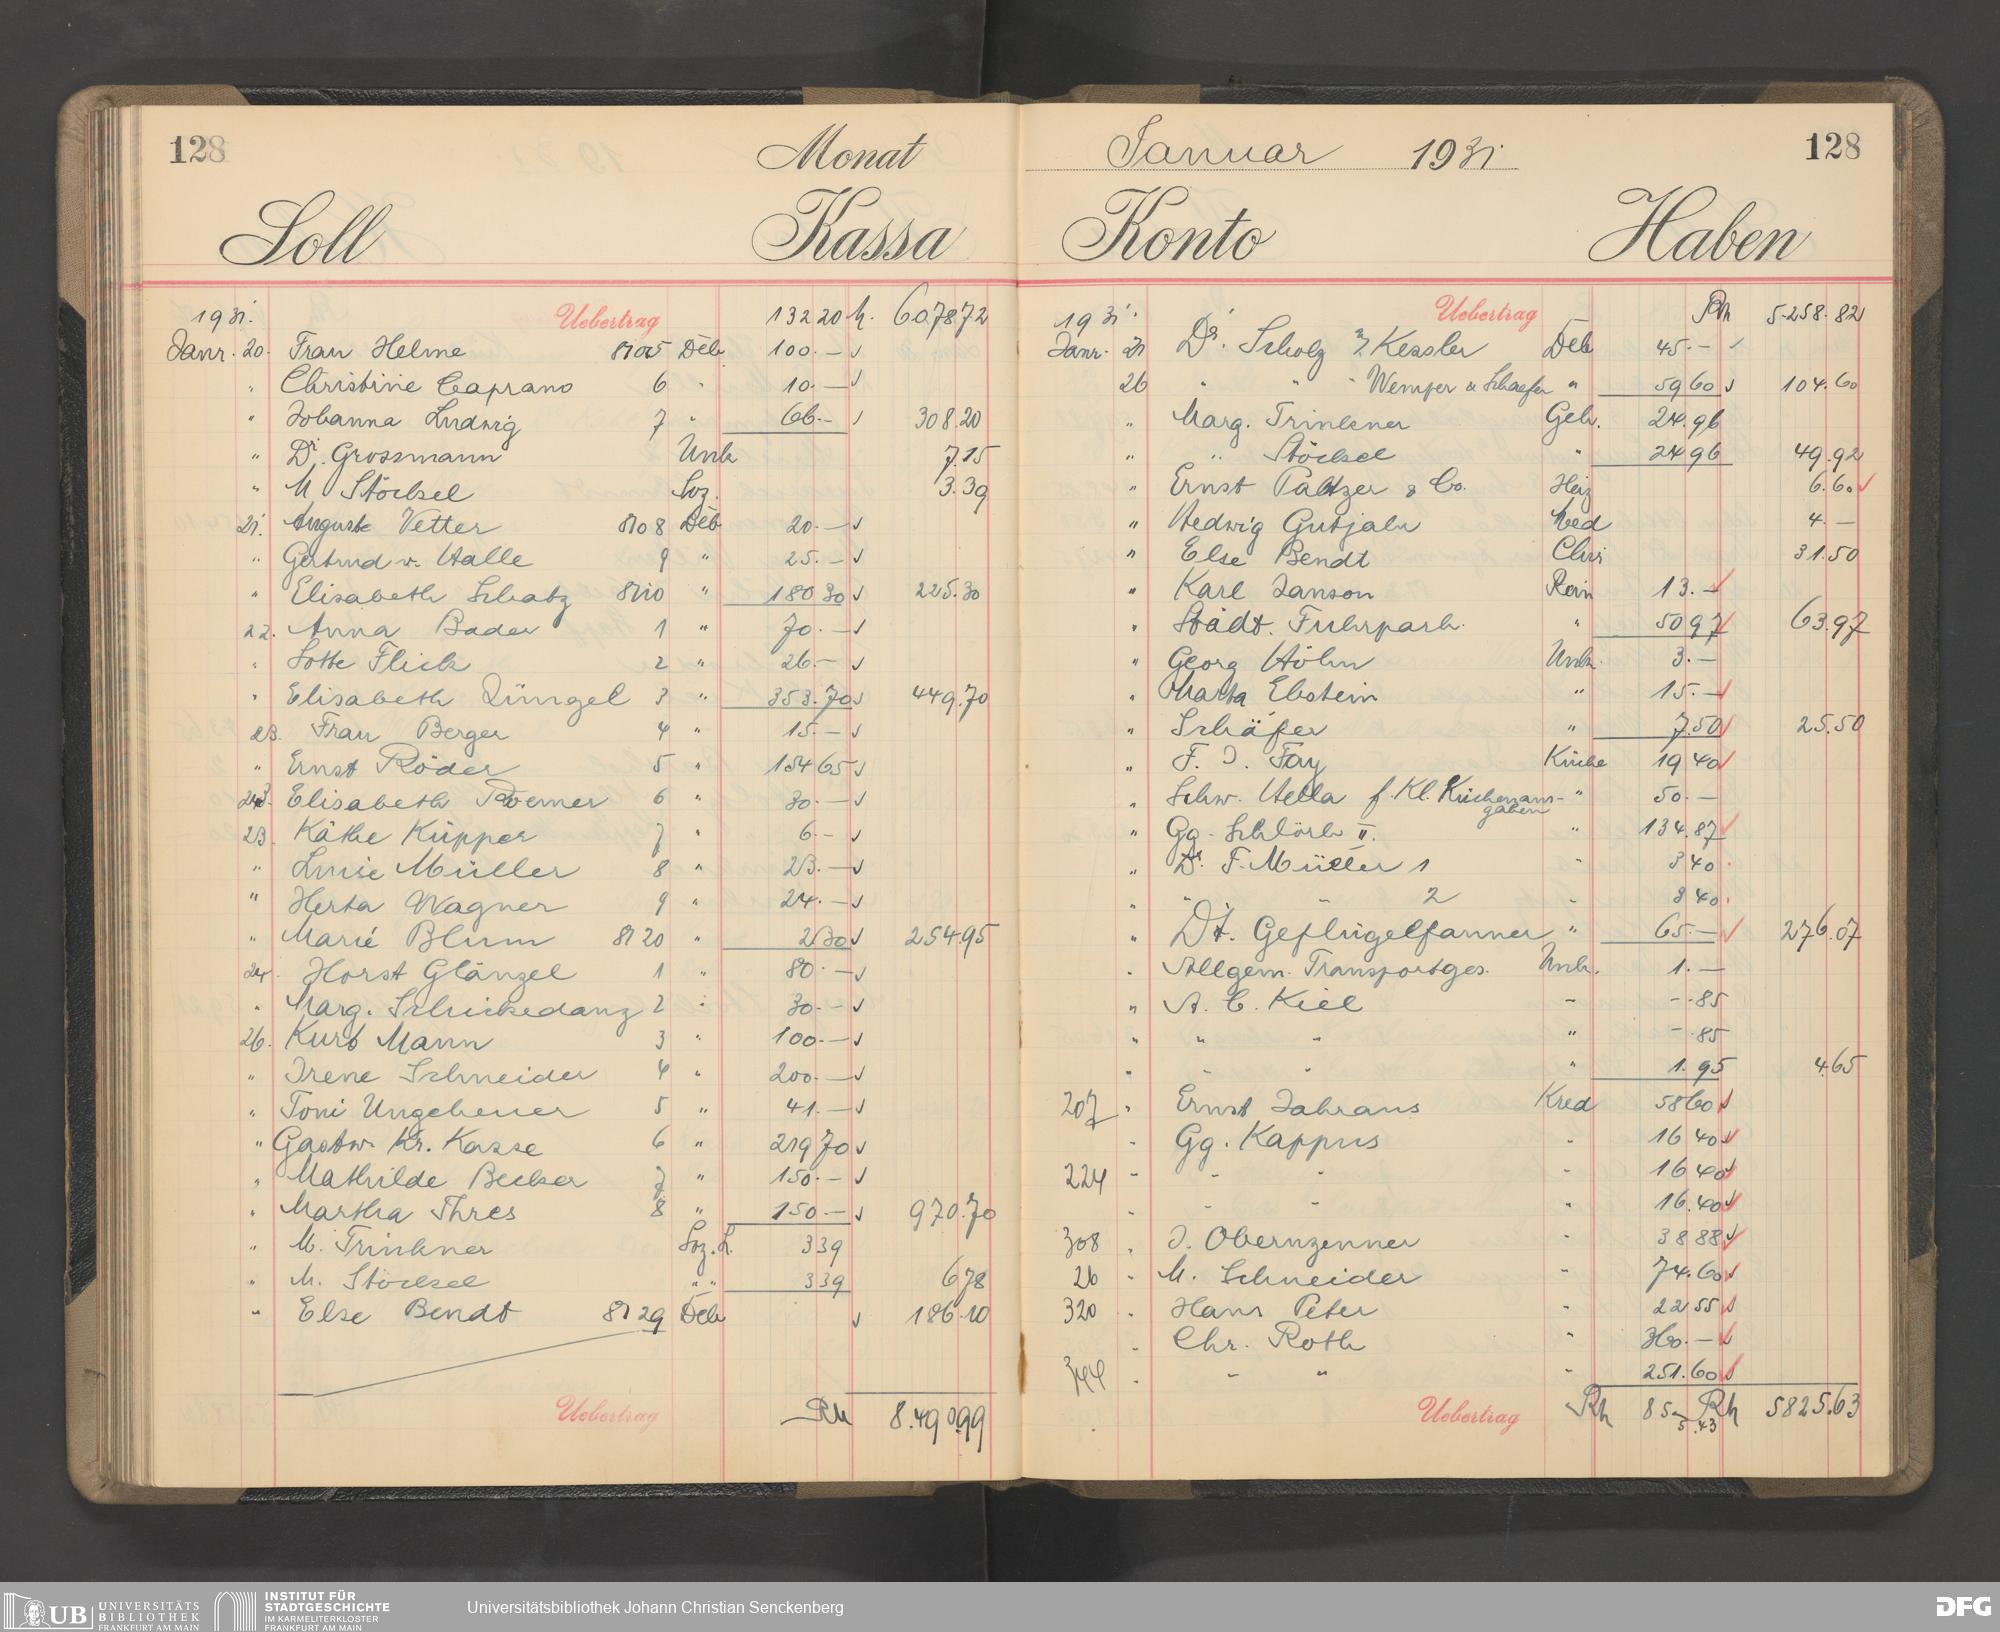 128
Monat
Soll Kassa
1931. Uebertrag 132 20 h. 6078.72
Janr. 20. Frau Helme 8705 Deb. 100.—
" Christine Caprano 6 " 10.—
" Johanna Ludwig 7 " 66.— 308.20
" Dr. Grossmann Unk 7.15
" M. Stöcksel Soz. 3.39
21. Auguste Vetter 8708 Deb 20.—
" Gertrud v. Halle 9 " 25.—
" Elisabeth Schatz 8710 " 180 30 225.30
22. Anna Bader 1 " 70.—
" Lotte Flick 2 " 26.—
" Elisabeth Züngel 3 " 353.70 449.70
23. Frau Berger 4 " 15.—
" Ernst Röder 5 " 154 65
Elisabeth Roemer 6 " 30.—
23. Käthe Küpper 7 " 6.—
" Luise Müller 8 " 23.—
" Herta Wagner 9 " 24.—
" Marie Blum 8720 " 2 30 254.95
24. Horst Glänzel 1 " 80.—
" Marg. Schickedanz 2 " 30.—
26. Kurt Mann 3 " 100.—
" Irene Schneider 4 " 200.—
" Toni Ungeheuer 5 " 41.—
" Gastw. Kr. Kasse 6 " 219 70
" Mathilde Becker 7 " 150.—
" Martha Thres 8 " 150.— 970.70
" M. Trinkner Soz. L. 3 39
" M. Stöcksel " " 3 39 6 78
" Else Bendt 8729 Deb 186.10
Uebertrag Rm 8.490.99
Januar 1931
128
Konto Haben
1931. Uebertrag Rm 5.258.82
Janr. 21 Dr. Scholz z. Kessler Deb 45.—
26 " " " Wemper & Schaefer " 59 60 104.60
" Marg. Trinkner Geh. 24.96
" " Stöcksel " 24 96 49.92
" Ernst Paltzer & Co. Heiz 6.60
" Hedwig Gutjahr Med 4.—
" Else Bendt Chir 31.50
" Karl Janson Rein 13.—
" Städt. Fuhrpark " 50 97 63.97
" Georg Höhn Unk. 3.—
" Marta Ebstein " 15.—
" Schäfer " 7.50 25.50
" F. J. Fay Küche 19 40
" Schw. Hella f. Kl. Küchenaus- " 50.—
gaben
" Gg. Schlörb II. " 134.87
" Dr. F. Müller 1 " 3 40
" " " 2 " 3 40
" Dt. Geflügelfarmer " 65.— 276.07
" Allgem. Transportges. Unk. 1.—
" A. C. Kiel " —.85
" " " " —.85
" " " " 1.95 4.65
207 " Ernst Jahraus Kred 58 60
" Gg. Kappus " 16 40
224 " " " " 16 40
" " " " 16.40
308 " J. Obernzenner " 38 88
26 " M. Schneider " 74.60
320 " Hans Peter " 22 55
" Chr. Roth " 360.—
344 " " " " 251.60
Uebertrag Rm 85 5.43 Rm 5825.63
UB UNIVERSITÄTS
BIBLIOTHEK
FRANKFURT AM MAIN
INSTITUT FÜR
STADTGESCHICHTE
IM KARMELITERKLOSTER
FRANKFURT AM MAIN
Universitätsbibliothek Johann Christian Senckenberg
DFG